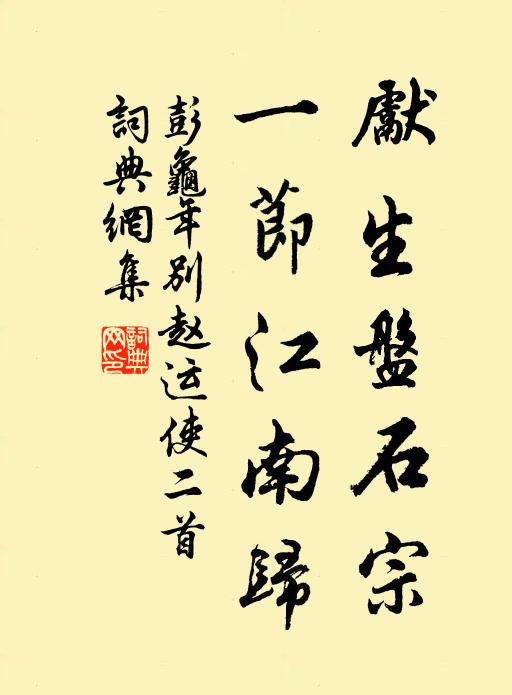 獻生盤石宗
一節江南歸
彭龜年别赵运使二首
詞典網集
詞典
網印